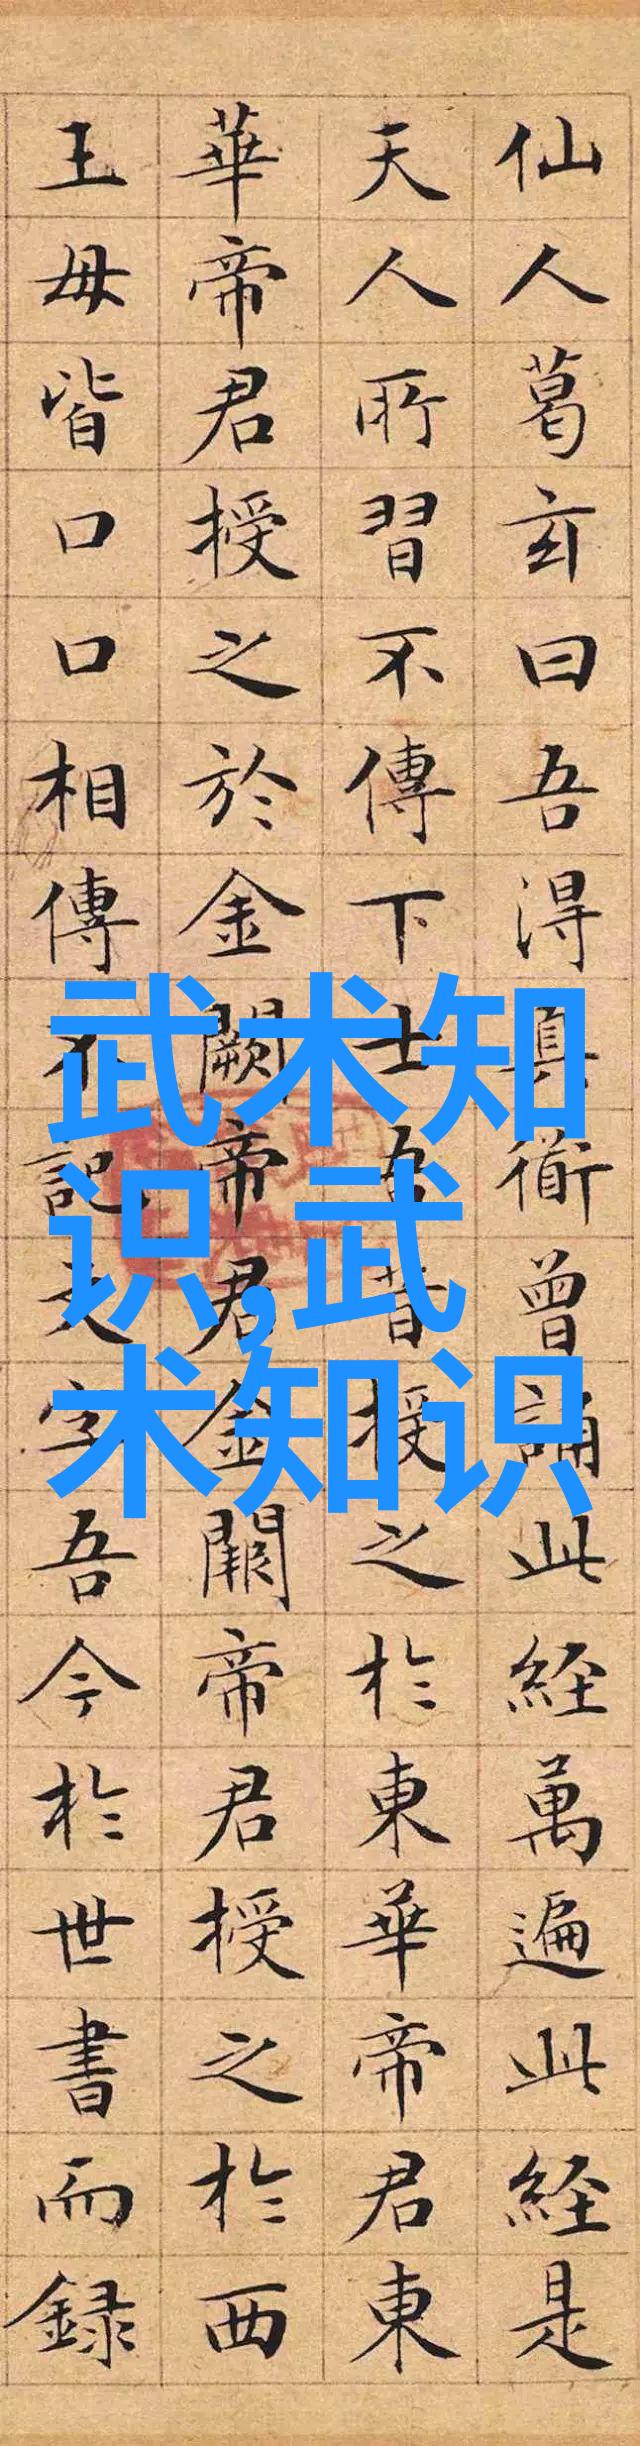 仙人葛玄曰吾得真術曾誦此経萬遍此経是
天人所習不傳下士吾昔授之於東華帝君東
華帝君授之於金闕帝君金闕帝君授之於西
王母皆口口相傳不記文字吾今於世書而録
武术知
识,武
术知识